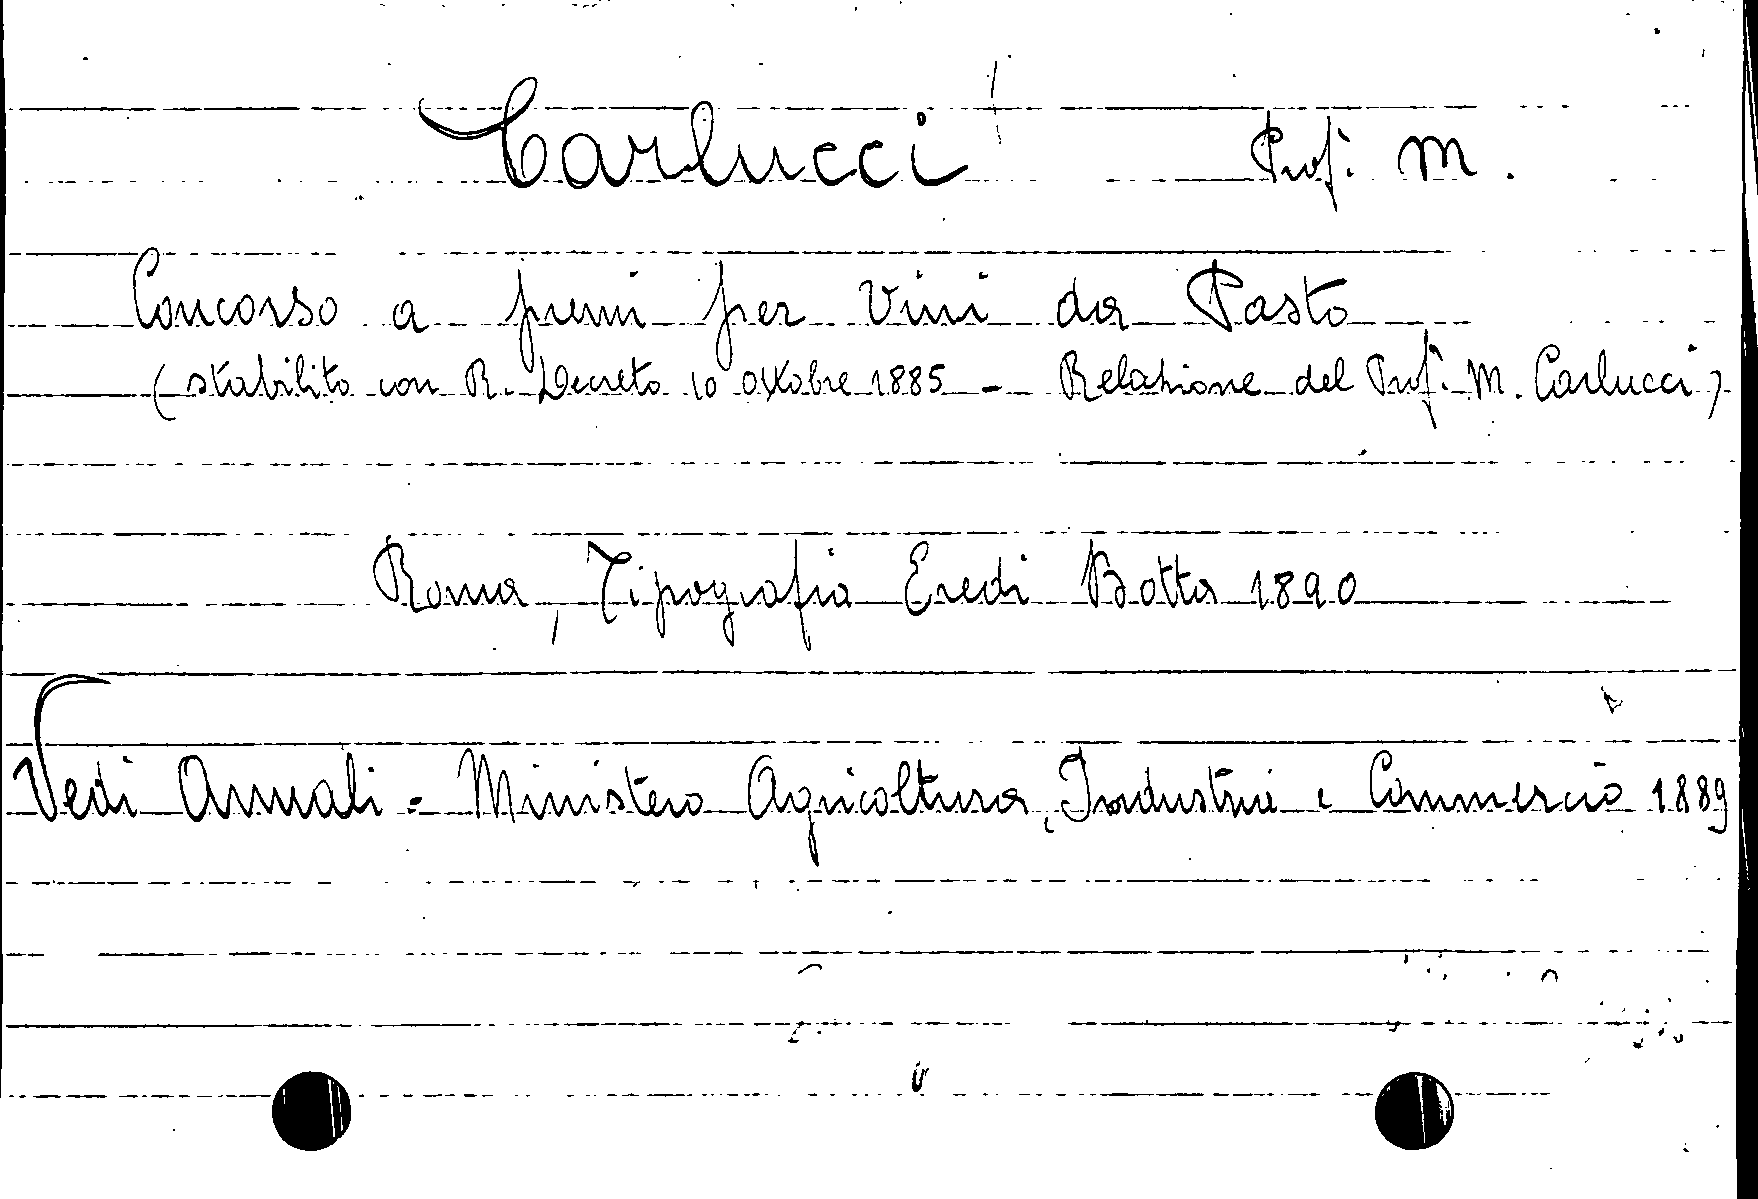 Carlucci Prof. M.
Concorso a premi per Vini da Pasto
(stabilito con R. Decreto 10 ottobre 1885 - Relazione del Prof. M. Carlucci)
Roma, Tipografia Eredi Botta 1890
Vedi Annali = Ministero Agricoltura, Industria e Commercio 1889